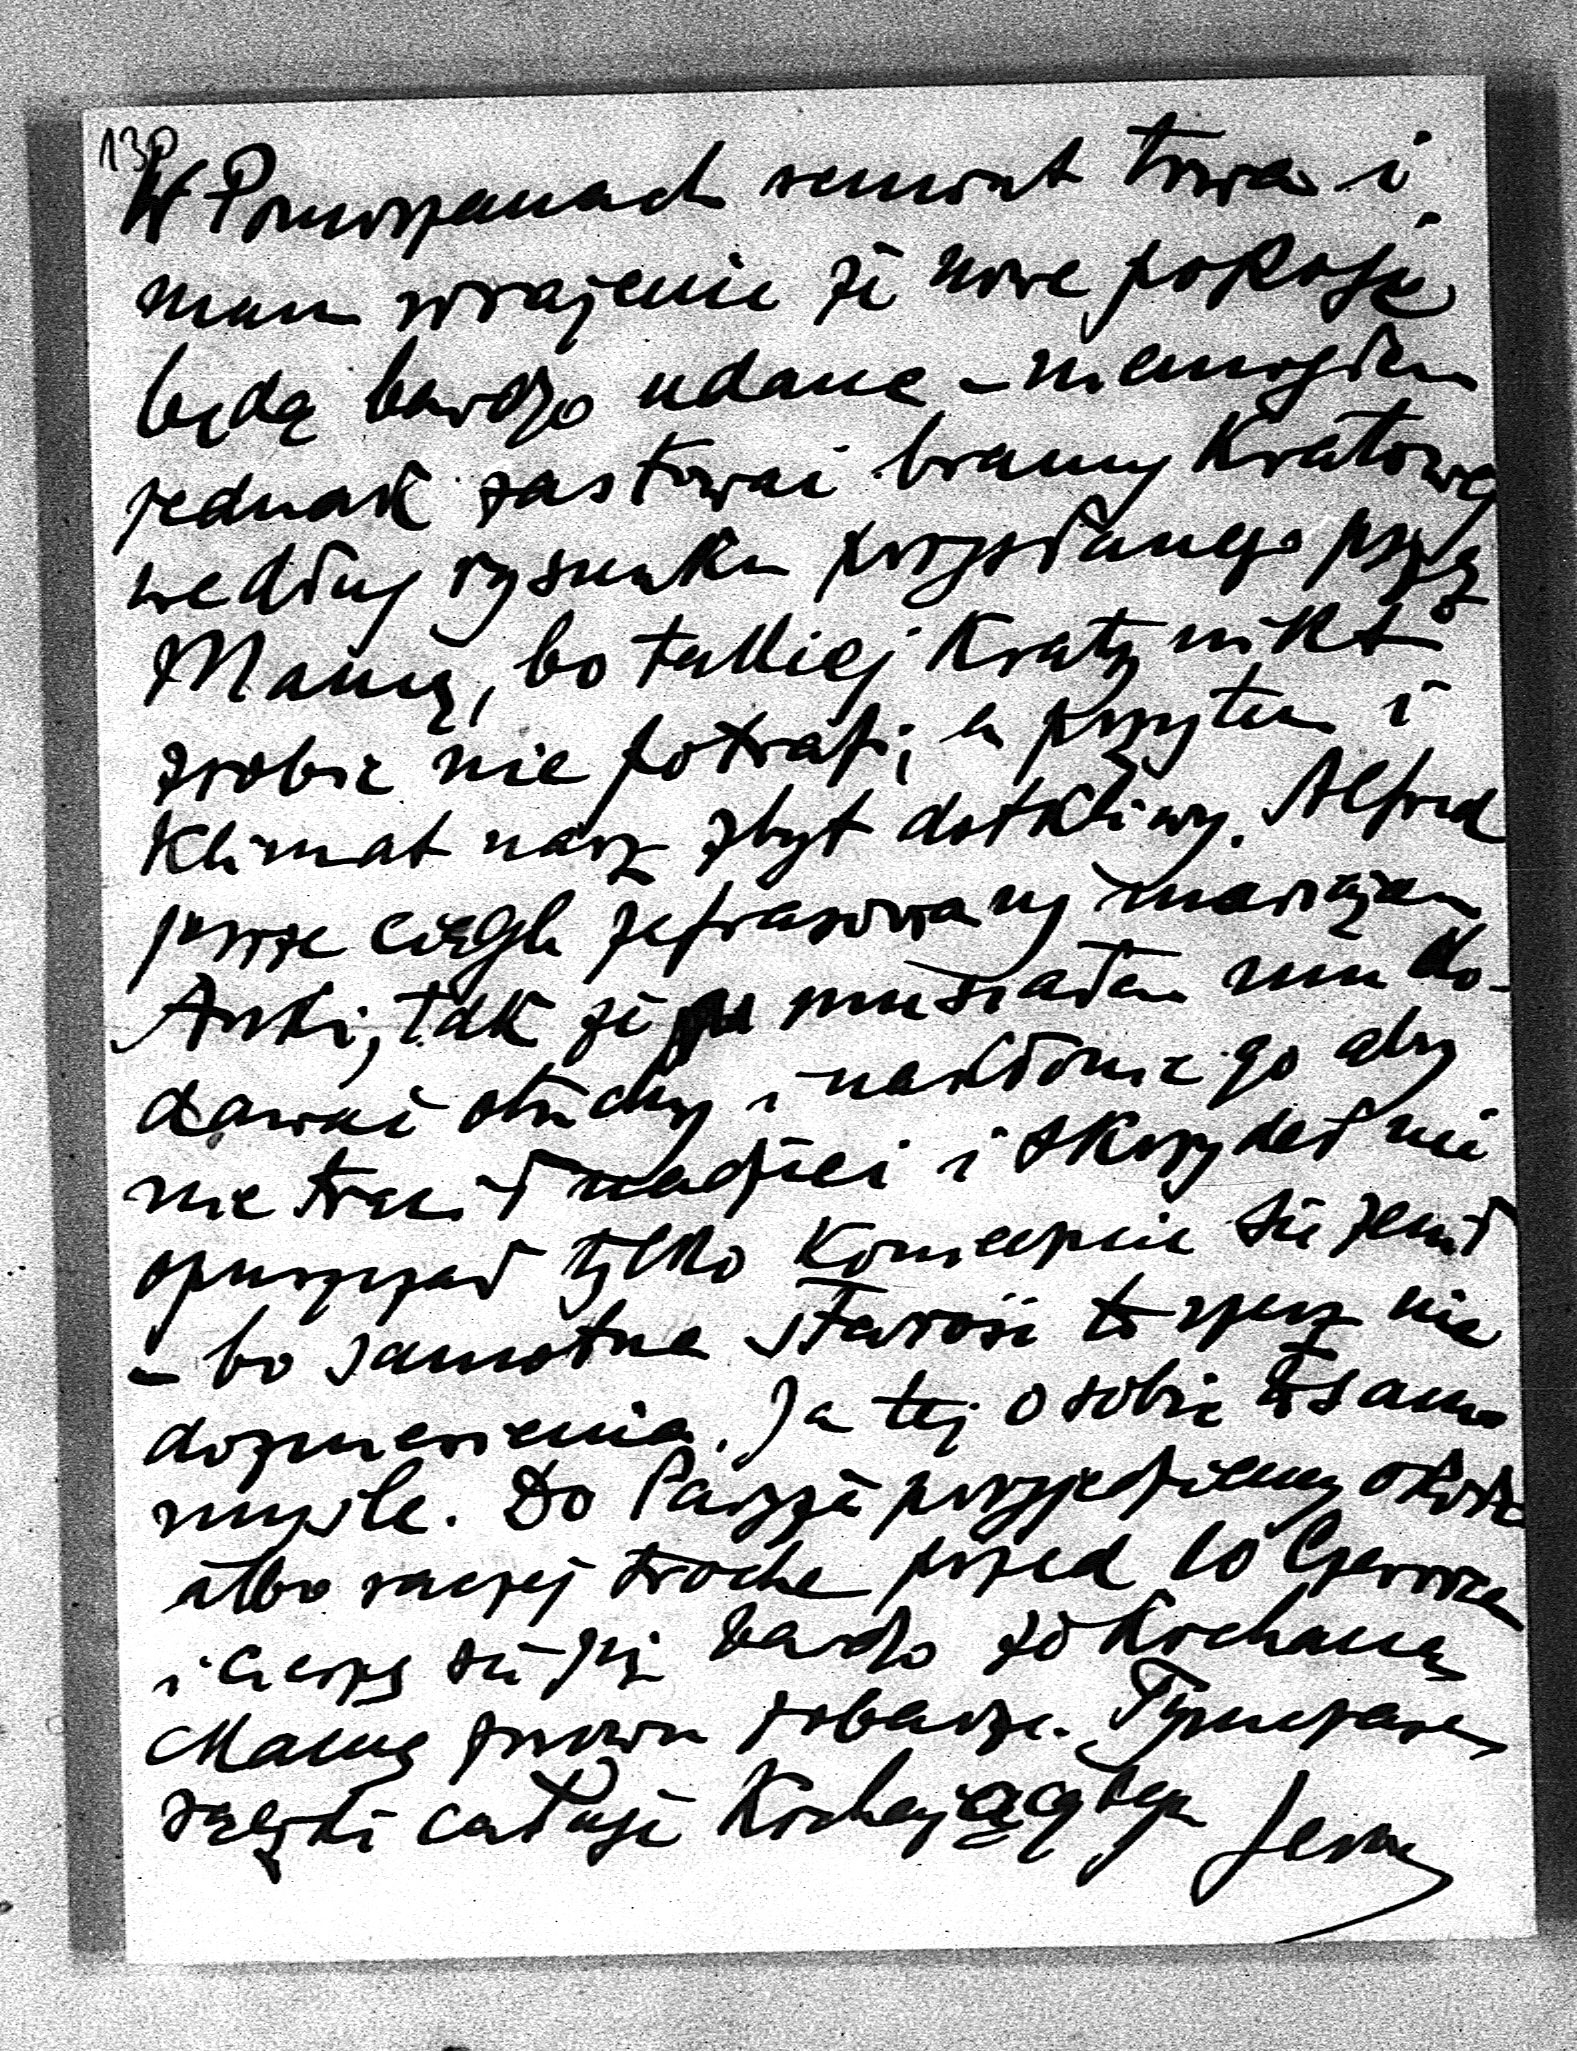 130
W Pomorzanach remont trwa i
mam wrażenie że nowe pokoje
będą bardzo udane – niemogłem
jednak zastować bramy Kratowej
według rysunku przysłanego przez
Mamę, bo takkiej Kraty nikt
zrobić nie potrafi; a przytem i
Klimat nasz zbyt dotkliwy. Alfred
pisze ciągle zafrasowany mariażem
tak że musiałem mu do-
dawać otuchy i nakłonić go aby
nie tracił nadziei i skrzydeł nie
opuszczał tylko Koniecznie się żenił
– bo samotna starość to rzecz nie
do zniesienia. Ja tej o sobie to samo
myślę. Do Paryża przyjedziemy około
albo raczej trochę przed 10 Czerwca
i cieszę się już bardzo że Kochaną
Mamę znowu zobaczę. Tymczasem
rączki całuję Kochający syn Jerzy